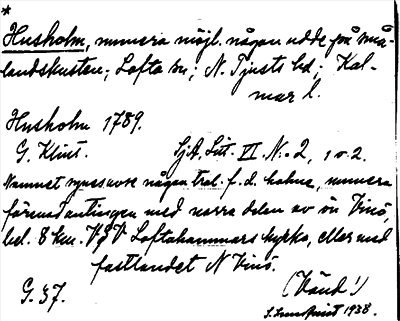 *
Husholm, numera möjl. någon udde på små-
landskusten; Lofta sn; N. Tjusts hd; Kal-
mar l.
Husholm 1789.
G. Klint. Sjök. Litt. VI. No 2, 1 o. 2.
Namnet synes avse någon trol. f. d. holme, numera
förenad antingen med norra delen av ön Vinö,
bel. 8 km. VSV Loftahammars kyrka, eller med
fastlandet N Vinö.
G. 37. (Vänd!)
S. Lundqvist 1938.